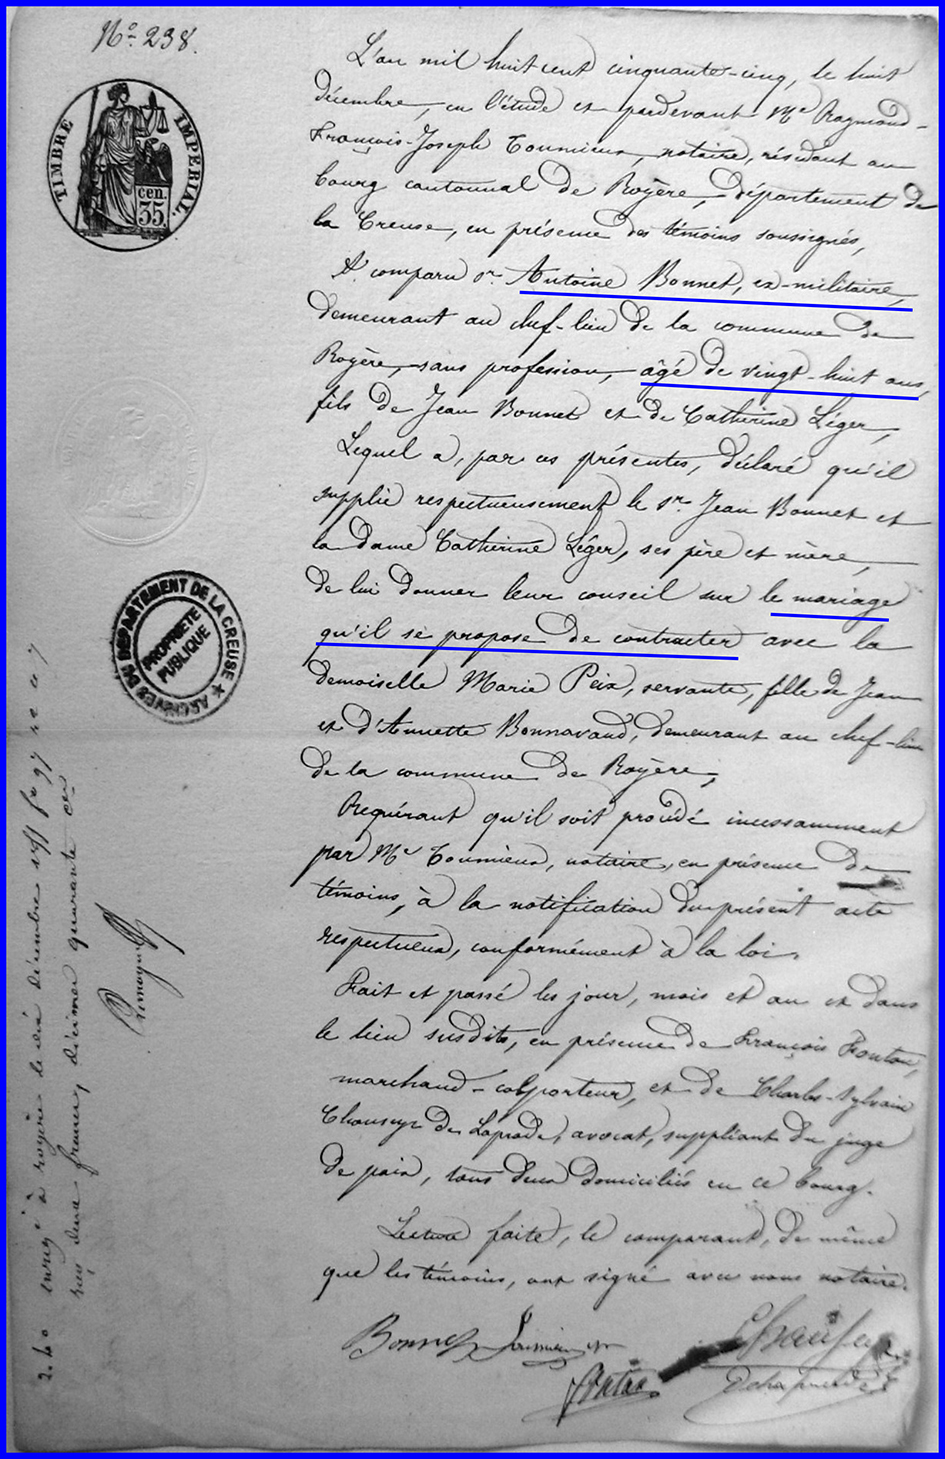 N° 238.
TIMBRE IMPERIAL.
cen.
35
L'an mil huit cent cinquante-cinq, le huit
décembre, en l'étude et pardevant Me Raymond-
François-Joseph Toumieux, notaire, résidant au
bourg cantonnal de Royère, département de
la Creuse, en présence des témoins soussignés,
A comparu sr. Antoine Bonnet, ex-militaire,
demeurant au chef-lieu de la commune de
Royère, sans profession, âgé de vingt-huit ans,
fils de Jean Bonnet et de Catherine Léger,
Lequel a, par ces présentes, déclaré qu'il
supplie respectueusement le sr. Jean Bonnet et
la dame Catherine Léger, ses père et mère,
de lui donner leur conseil sur le mariage
qu'il se propose de contracter avec la
demoiselle Marie Peix, servante, fille de Jean
et d'Annette Bonnavaud, demeurant au chef-lieu
de la commune de Royère,
Requérant qu'il soit procédé incessamment
par Me Toumieux, notaire, en présence de
témoins, à la notification du présent acte
respectueux, conformément à la loi.
Fait et passé les jour, mois et an et dans
le lieu susdits, en présence de François Fontan,
marchand-colporteur, et de Charles-Sylvain
Chauseyx de Laprade, avocat, suppliant du juge
de paix, tous deux domiciliés en ce bourg.
Lecture faite, le comparant, de même
que les témoins, ont signé avec nous notaire.
Bonnet Toumieux
Fontan
ARCHIVES DU DEPARTEMENT DE LA CREUSE
PROPRIÉTÉ
PUBLIQUE
2.40
enregé à royère le dix décembre 1855 fo 97
reçu deux francs, décimes quarante ces